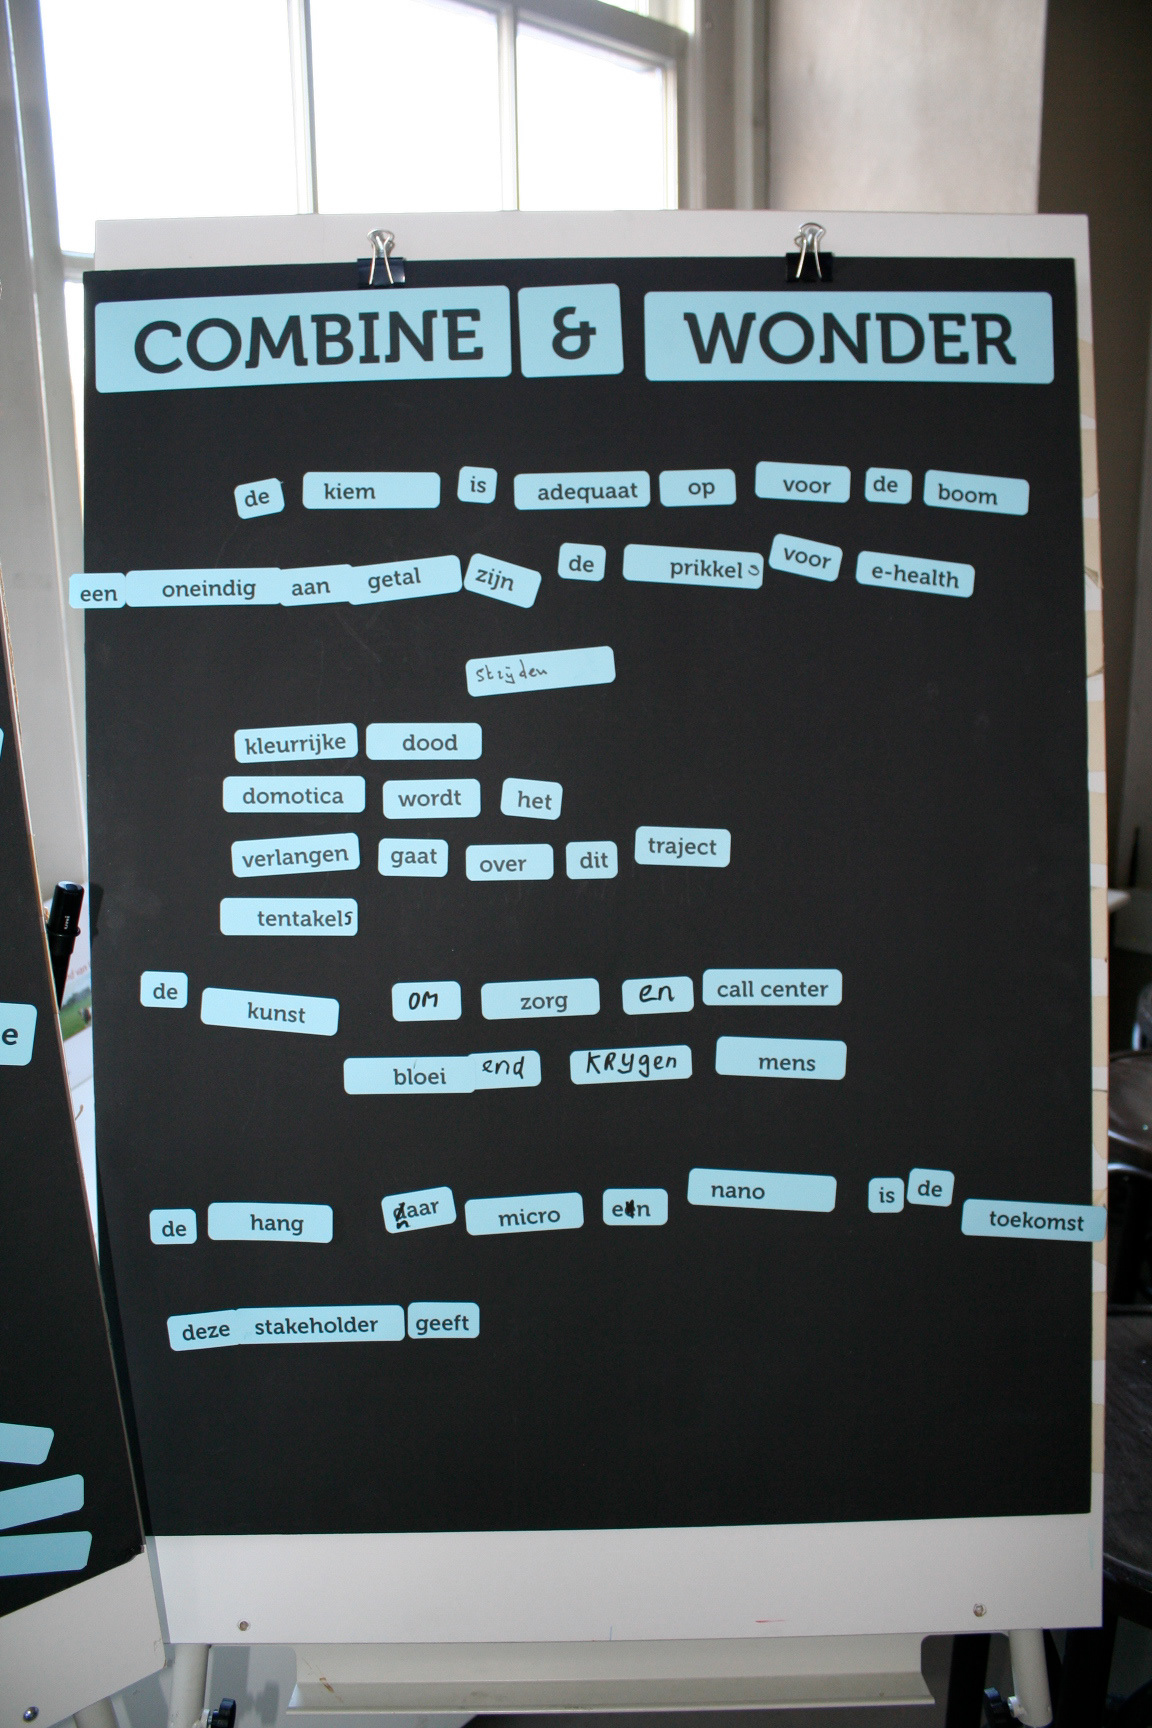 COMBINE & WONDER
de kiem is adequaat op voor de boom
een oneindig aan getal zijn de prikkels voor e-health
strijden
kleurrijke dood
domotica wordt het
verlangen gaat over dit traject
tentakels
de kunst om zorg en call center
bloei end KRYgen mens
de hang naar micro en nano is de toekomst
deze stakeholder geeft
e